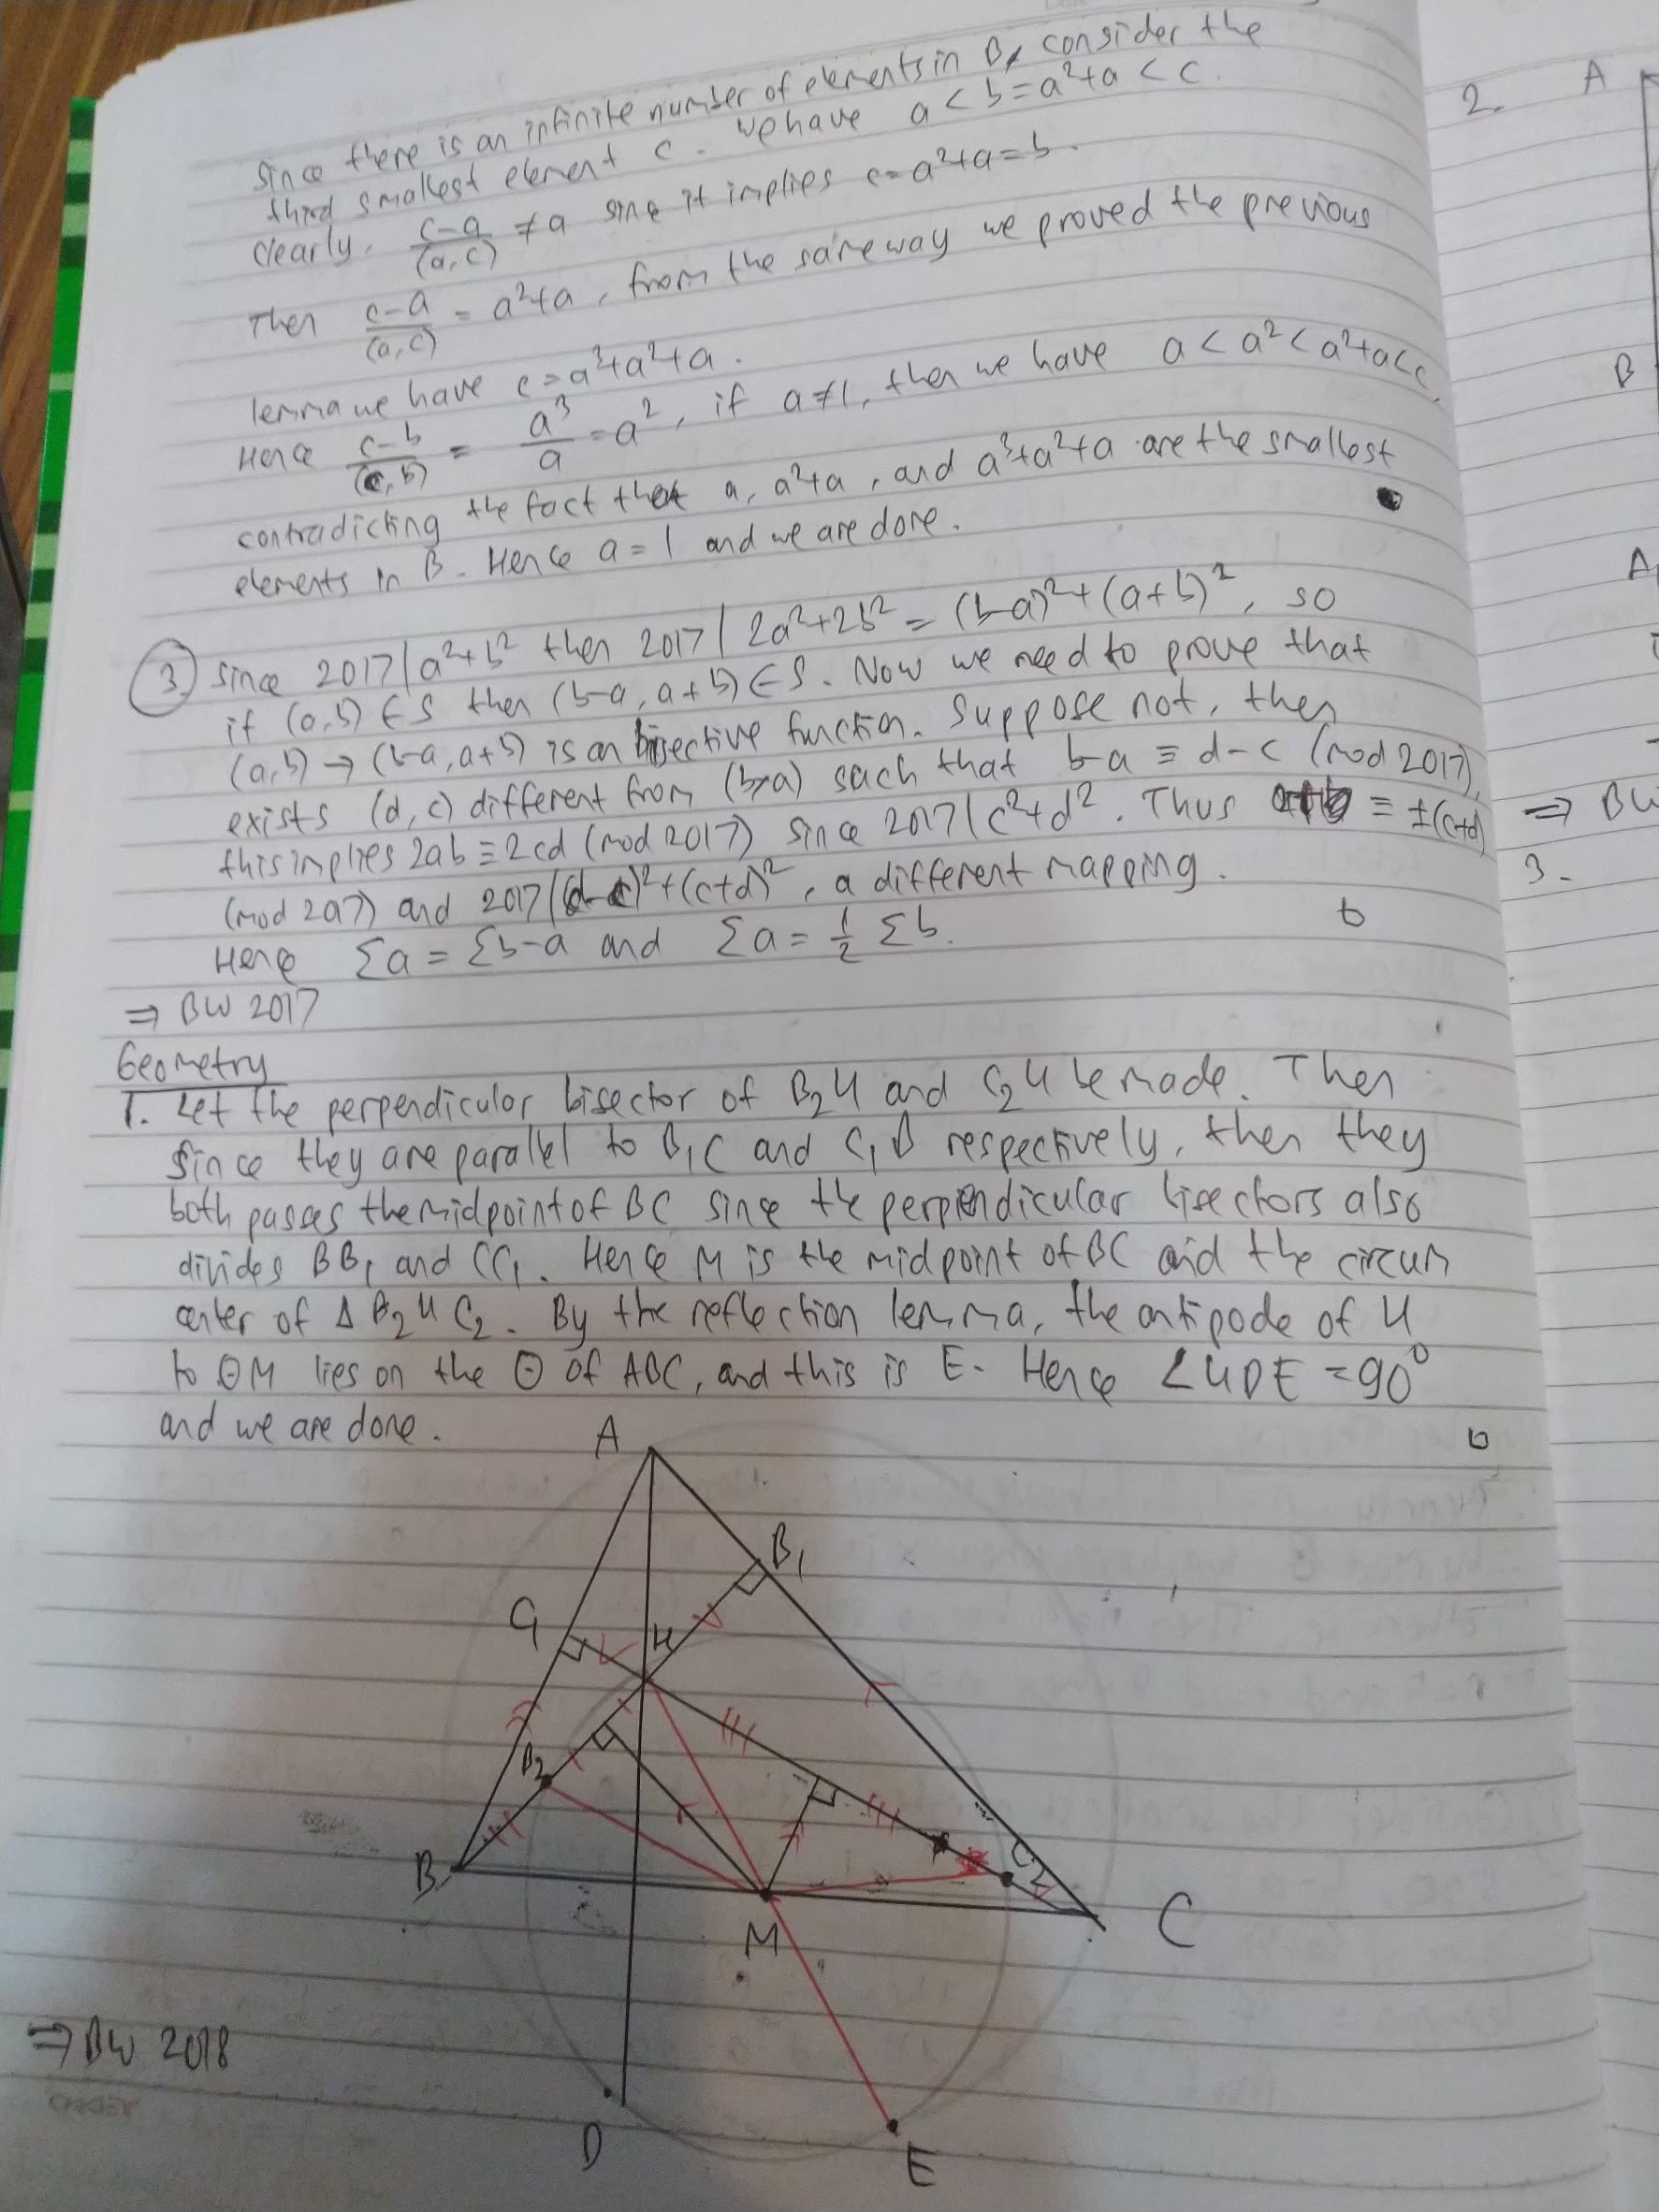 Since there is an infinite number of elements in B, consider the
third smallest element c. We have a < b = a²+a < c.
Clearly, (c-a)/(a,c) ≠ a since it implies c = a²+a = b.
Then (c-a)/(a,c) = a²+a, from the same way we proved the previous
lemma we have c = a³+a²+a.
Hence (c-b)/(c,b) = a³/a = a², if a≠1, then we have a < a² < a²+a < c,
contradicting the fact that a, a²+a, and a³+a²+a are the smallest
elements in B. Hence a = 1 and we are done.
3) Since 2017 | a²+b² then 2017 | 2a²+2b² = (b-a)²+(a+b)², so
if (a,b) ∈ S then (b-a, a+b) ∈ S. Now we need to prove that
(a,b) → (b-a, a+b) is an bijective function. Suppose not, then
exists (d,c) different from (b,a) such that b-a ≡ d-c (mod 2017),
this implies 2ab ≡ 2cd (mod 2017) since 2017 | c²+d². Thus a+b ≡ ±(c+d)
(mod 2017) and 2017 | (d-c)²+(c+d)², a different mapping.
Hence Σa = Σb-a and Σa = ½ Σb.
⇒ BW 2017
Geometry
1. Let the perpendicular bisector of B₂H and C₂H be made. Then
since they are parallel to B₁C and C₁B respectively, then they
both passes the midpoint of BC since the perpendicular bisectors also
divides BB₁ and CC₁. Hence M is the midpoint of BC and the circum
center of Δ B₂HC₂. By the reflection lemma, the antipode of H
to ⊙M lies on the ⊙ of ABC, and this is E. Hence ∠HDE = 90°
and we are done.
A
B₁
C₁
H
B₂
B
C₂
C
M
D
E
⇒ BW 2018
2. A
B
A
⇒ BW
3.